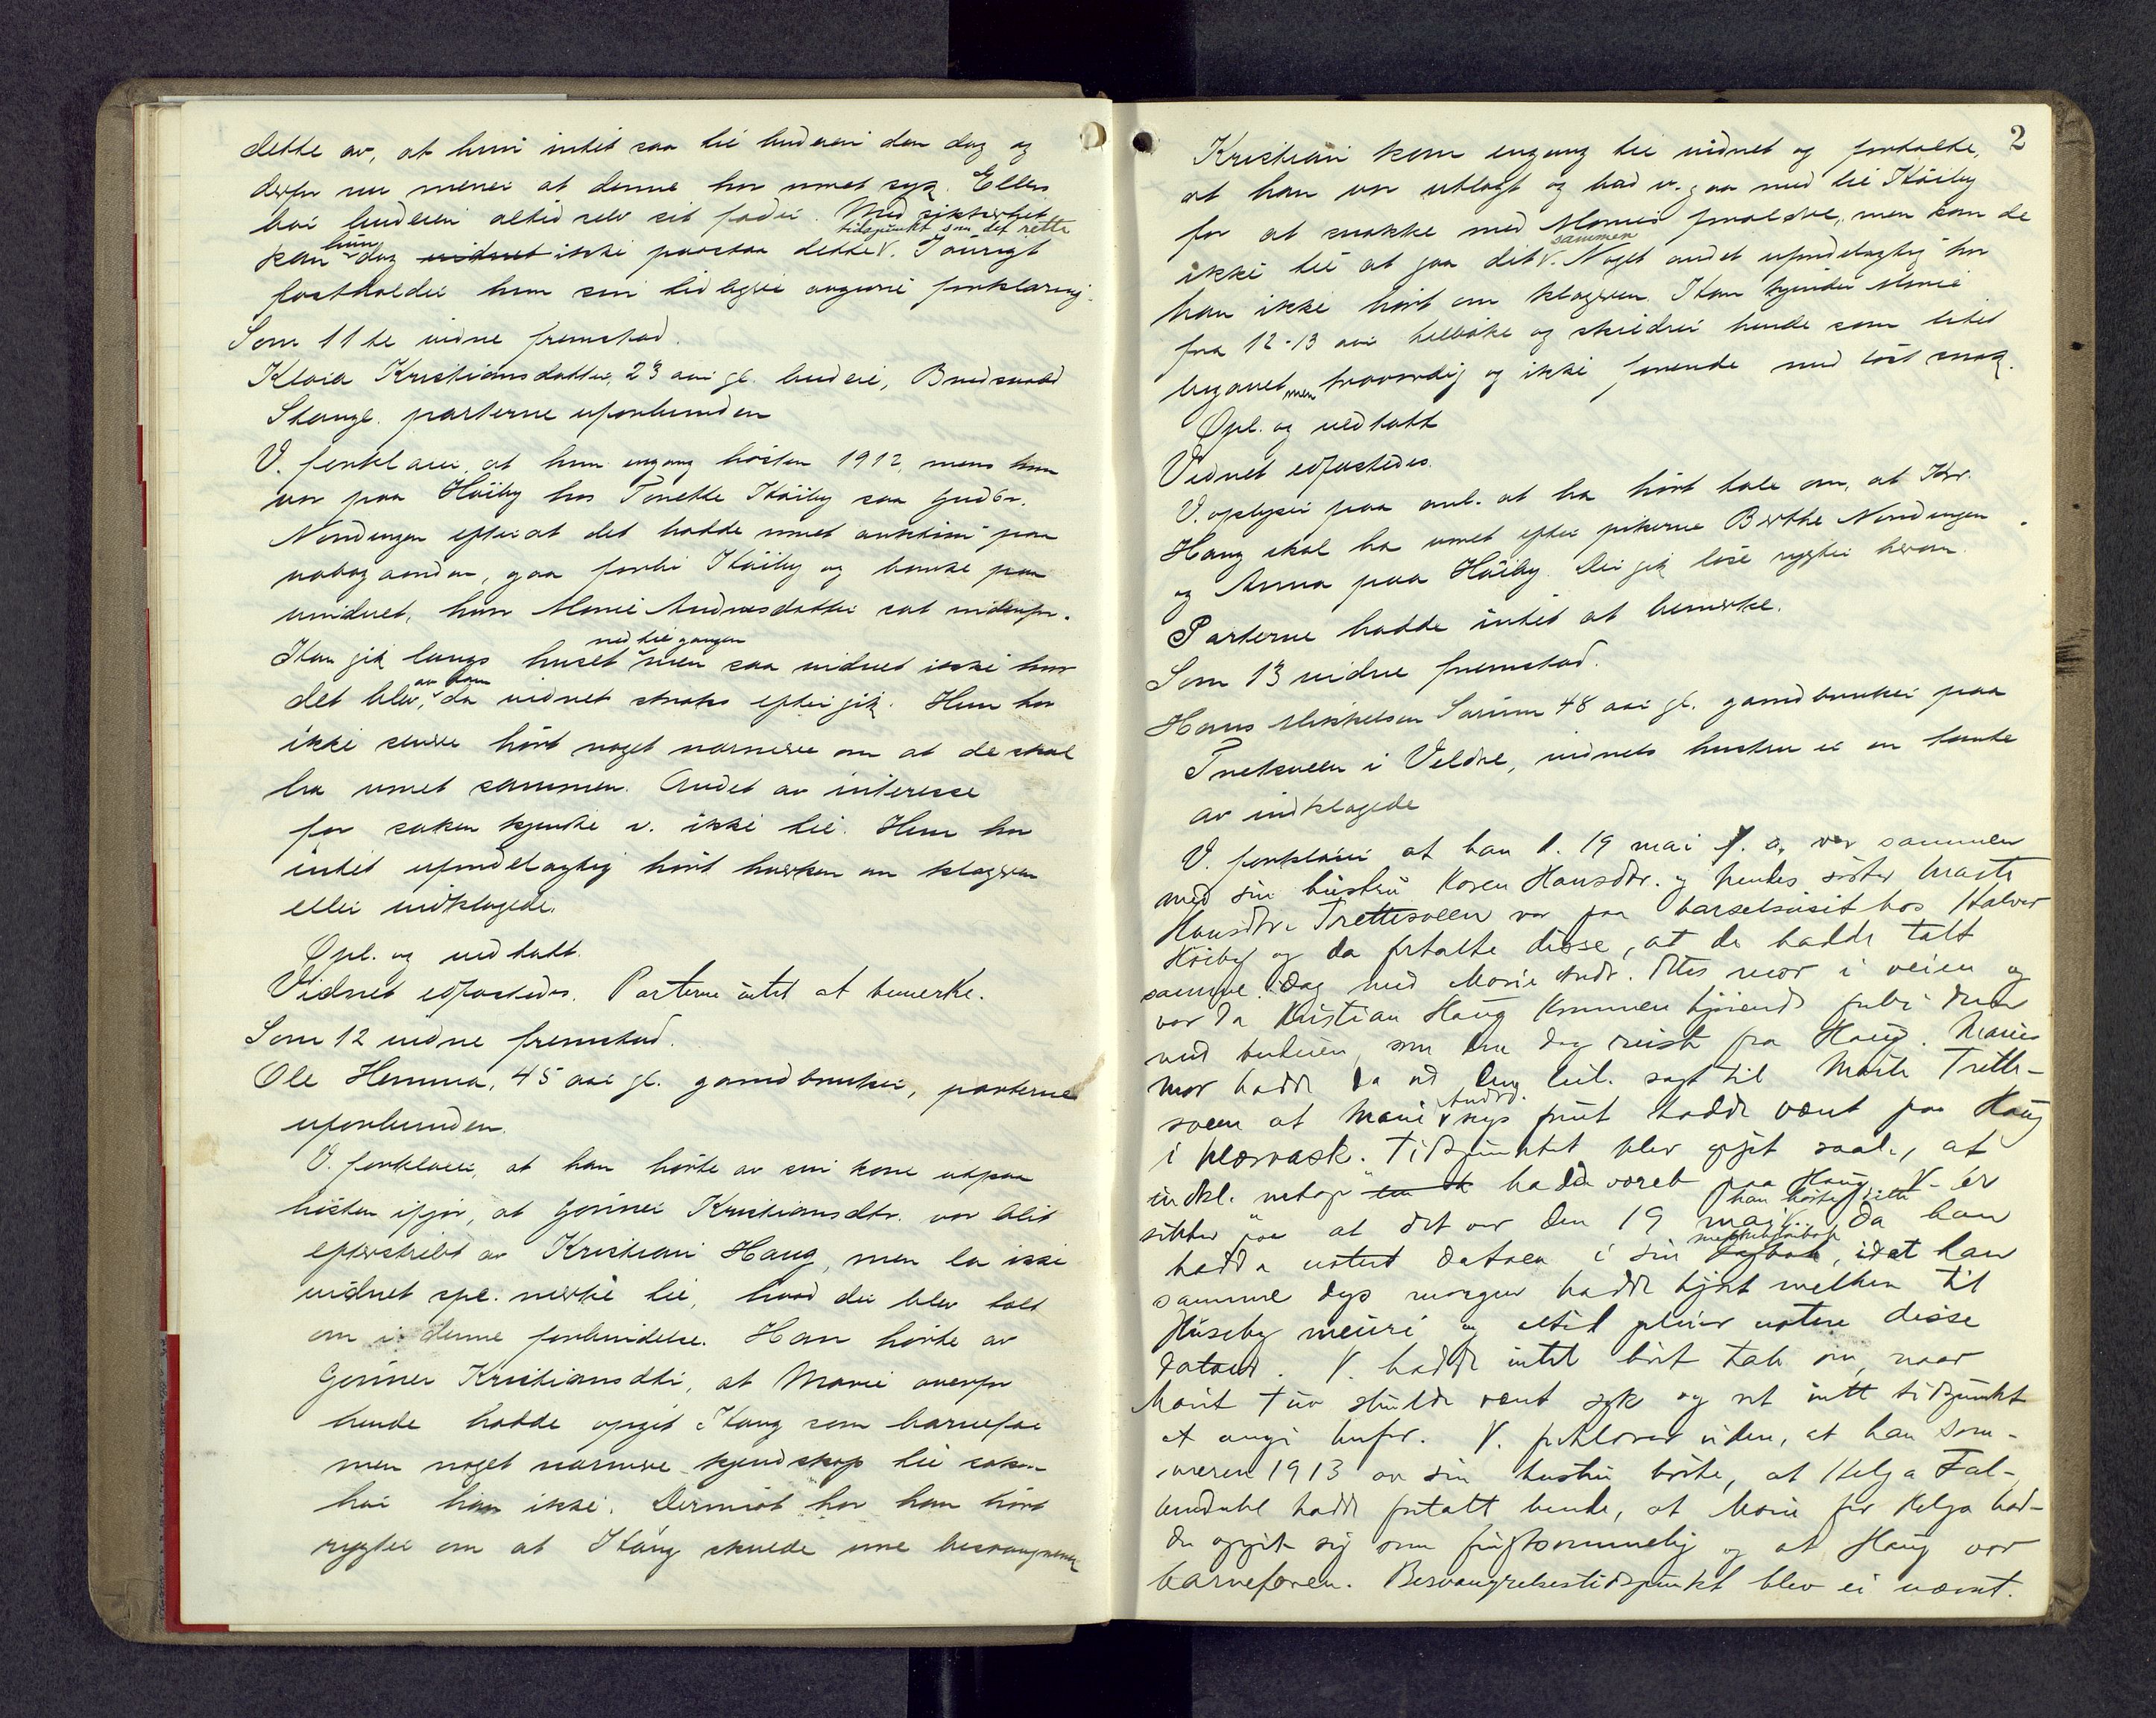 dette av, at hun intet saa til budeien den dag og
derfor nu mener at denne har været syk. Ellers
bar budeien altid selv sit foder. Med sikkerhet
kan hun dog vidnet ikke paastaa dette tidspunkt som det rette. Iøvrigt
fastholder hun sin tidligere avgivne forklaring.
Som 11te vidne fremstod.
Klara Kristiansdatter, 23 aar gl. budeie,
Stange. parterne uforbunden
V. forklarer, at hun engang høsten 1912, mens hun
var paa Høiby hos Tonette Høiby saa Gudbr.
Nordengen efterat det hadde været auktion paa
nabogaarden, gaa forbi Høiby og banke paa
vinduet, hvor Marie Andreasdatter sat indenfor.
Han gik langs huset ned til gangen men saa vidnet ikke hvor
det blev av ham, da vidnet straks efter gik. Hun har
ikke senere hørt noget nærmere om at de skal
ha været sammen. Andet av interesse
for saken kjente v. ikke til. Hun har
intet ufordelagtig hørt hverken om klageren
eller indklagede.
Opl. og vedtatt.
Vidnet edfæstedes. Parterne intet at bemerke.
Som 12 vidne fremstod.
Ole Hemma, 45 aar gl. gaardbruker, parterne
uforbunden.
V. forklarer, at han hørte av sin kone utpaa
høsten ifjor, at Gunner Kristiansdtr. var blit
efterstræbt av Kristian Haug, men la ikke
vidnet spe. merke til, hvad der blev talt
om i denne forbindelse. Han hørte av
Gunner Kristiansdtr, at Marie overfor
hende hadde opgit Haug som barnefar
men noget nærmere kjendskap til saken
har han ikke. Derimot har han hørt
rygter om at Haug skulde være besvangreren
2
Kristian kom engang til vidnet og fortalte,
at han var utlagt og bad v. gaa med til Høiby
for at snakke med Maries forældre, men kom de
ikke til at gaa dit sammen. Noget andet ufordelagtig har
han ikke hørt om klageren. Han kjender Marie
fra 12-13 aar tilbake og skildrer hende som litet
begavet men troværdig og ikke farende med løst snak.
Opl. og vedtatt
Vidnet edfæstedes.
V. oplyser paa anl. at ha hørt tale om, at Kr.
Haug skal ha været efter pikerne Berthe Nordengen
og Anna paa Høiby. Der gik løse rygter herom.
Parterne hadde intet at bemerke.
Som 13 vidne fremstod.
Hans Mikkelsen Sørum 48 aar gl. gaardbruker paa
Tretsveen i Veldre, vidnets hustru er en tante
av indklagede
V. forklarer at han d. 19 mai f. a. var sammen
med sin hustru Karen Hansdtr. og hendes søster Marte
Hansdtr. Trettesveen var paa barselvisit hos Halvor
Høiby og da fortalte disse, at de hadde talt
samme dag med Marie Andr. dtrs mor i veien og
var da Kristian Haug kommen kjørende forbi dem
med budeien, som den dag reiste fra Haug. Maries
mor hadde da ved den leil. sagt til Marte Trette-
sveen at Marie Andrd. nys forut hadde vært paa Haug
i klæsvask. Tidspunktet blev opgit saal., at
indkl. netop hadde været paa Haug. V. er
sikker paa at det var den 19 mai han hørte dette, da han
hadde notert datoen i sin dagbok, idet han
samme dags morgen hadde kjørt melken til
Huseby meieri og altid pleier notere disse
datoer. V. hadde intet hørt tale om, naar
Marit Tuv skulde vært syk og vet intet tidspunkt
at angi herfor. V. forklarer viden, at han som-
meren 1913 av sin hustru hørte, at Helga Fal-
hadde fortalt hende, at Marie for Helga had-
de opgit sig som frugtsommelig og at Haug var
barnefaren. Besvangrelsestidspunkt blev ei nævnt.